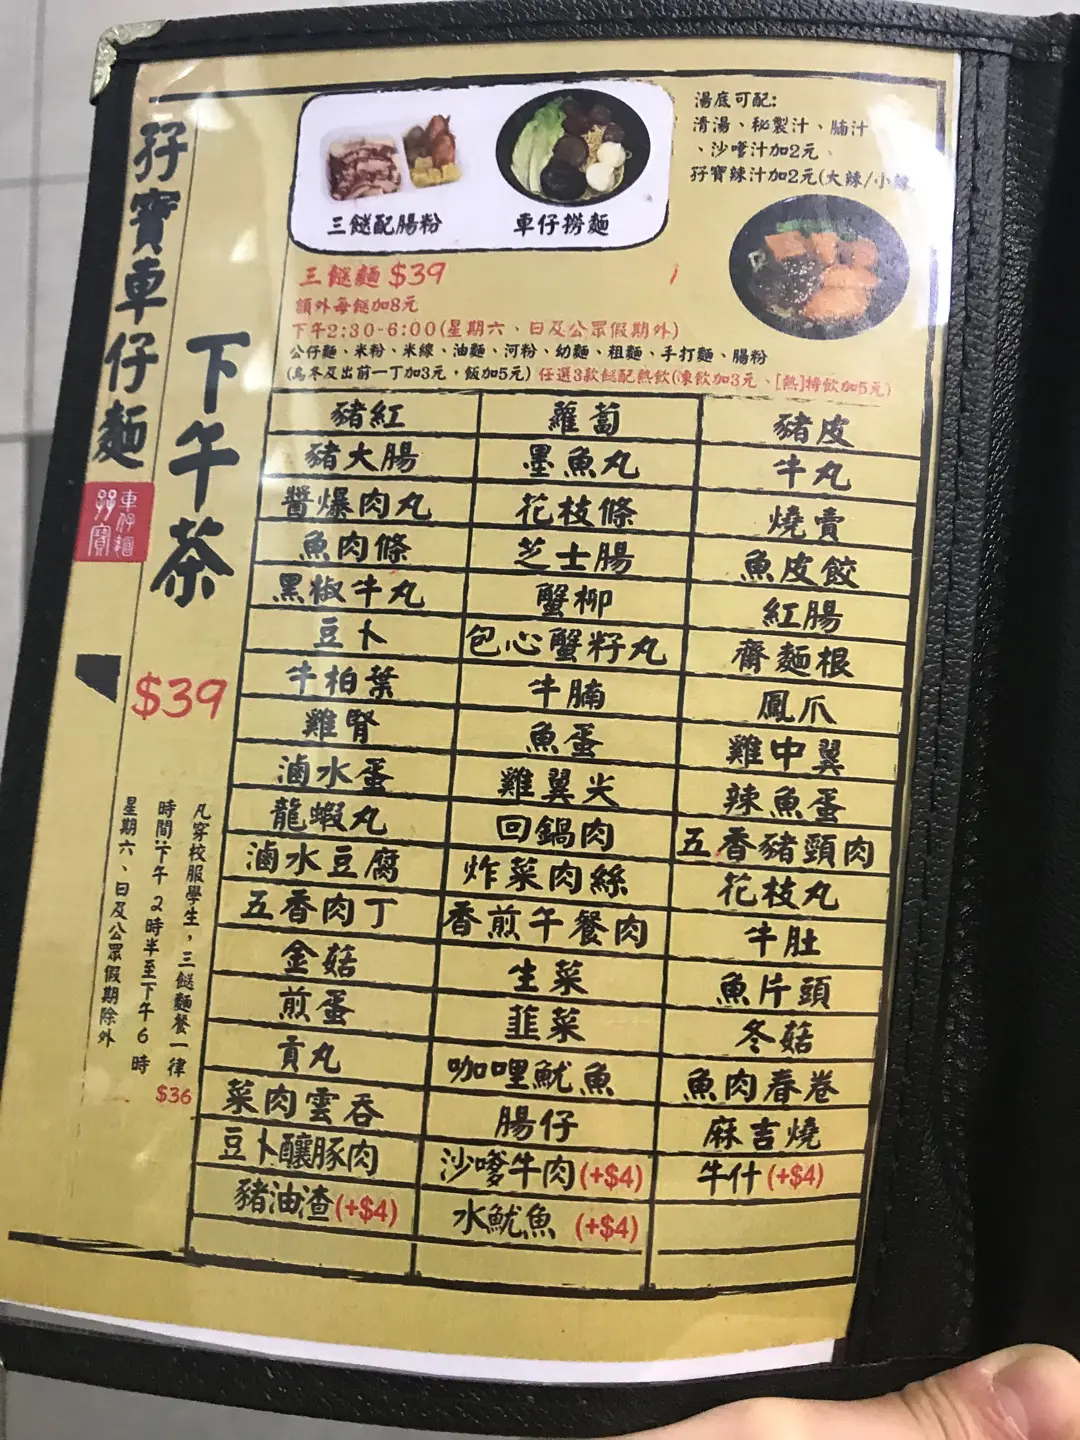 孖寶車仔麵
孖寶
車仔麵
下午茶
$39
凡穿校服學生，三餸麵餐一律$36
時間:下午2時半至下午6時
星期六、日及公眾假期除外
三餸配腸粉
車仔撈麵
湯底可配:
清湯、秘製汁、腩汁
、沙嗲汁加2元、
孖寶辣汁加2元(大辣/小辣
三餸麵 $39
額外每餸加8元
下午2:30-6:00(星期六、日及公眾假期外)
公仔麵、米粉、米線、油麵、河粉、幼麵、粗麵、手打麵、腸粉
(烏冬及出前一丁加3元，飯加5元) 任選3款餸配熱飲(凍飲加3元、[熱]特飲加5元)
豬紅 蘿蔔 豬皮
豬大腸 墨魚丸 牛丸
醬爆肉丸 花枝條 燒賣
魚肉條 芝士腸 魚皮餃
黑椒牛丸 蟹柳 紅腸
豆卜 包心蟹籽丸 齋麵根
牛柏葉 牛腩 鳳爪
雞腎 魚蛋 雞中翼
滷水蛋 雞翼尖 辣魚蛋
龍蝦丸 回鍋肉 五香豬頸肉
滷水豆腐 炸菜肉絲 花枝丸
五香肉丁 香煎午餐肉 牛肚
金菇 生菜 魚片頭
煎蛋 韮菜 冬菇
貢丸 咖哩魷魚 魚肉春卷
菜肉雲吞 腸仔 麻吉燒
豆卜釀豚肉 沙嗲牛肉(+$4) 牛什(+$4)
豬油渣(+$4) 水魷魚 (+$4)